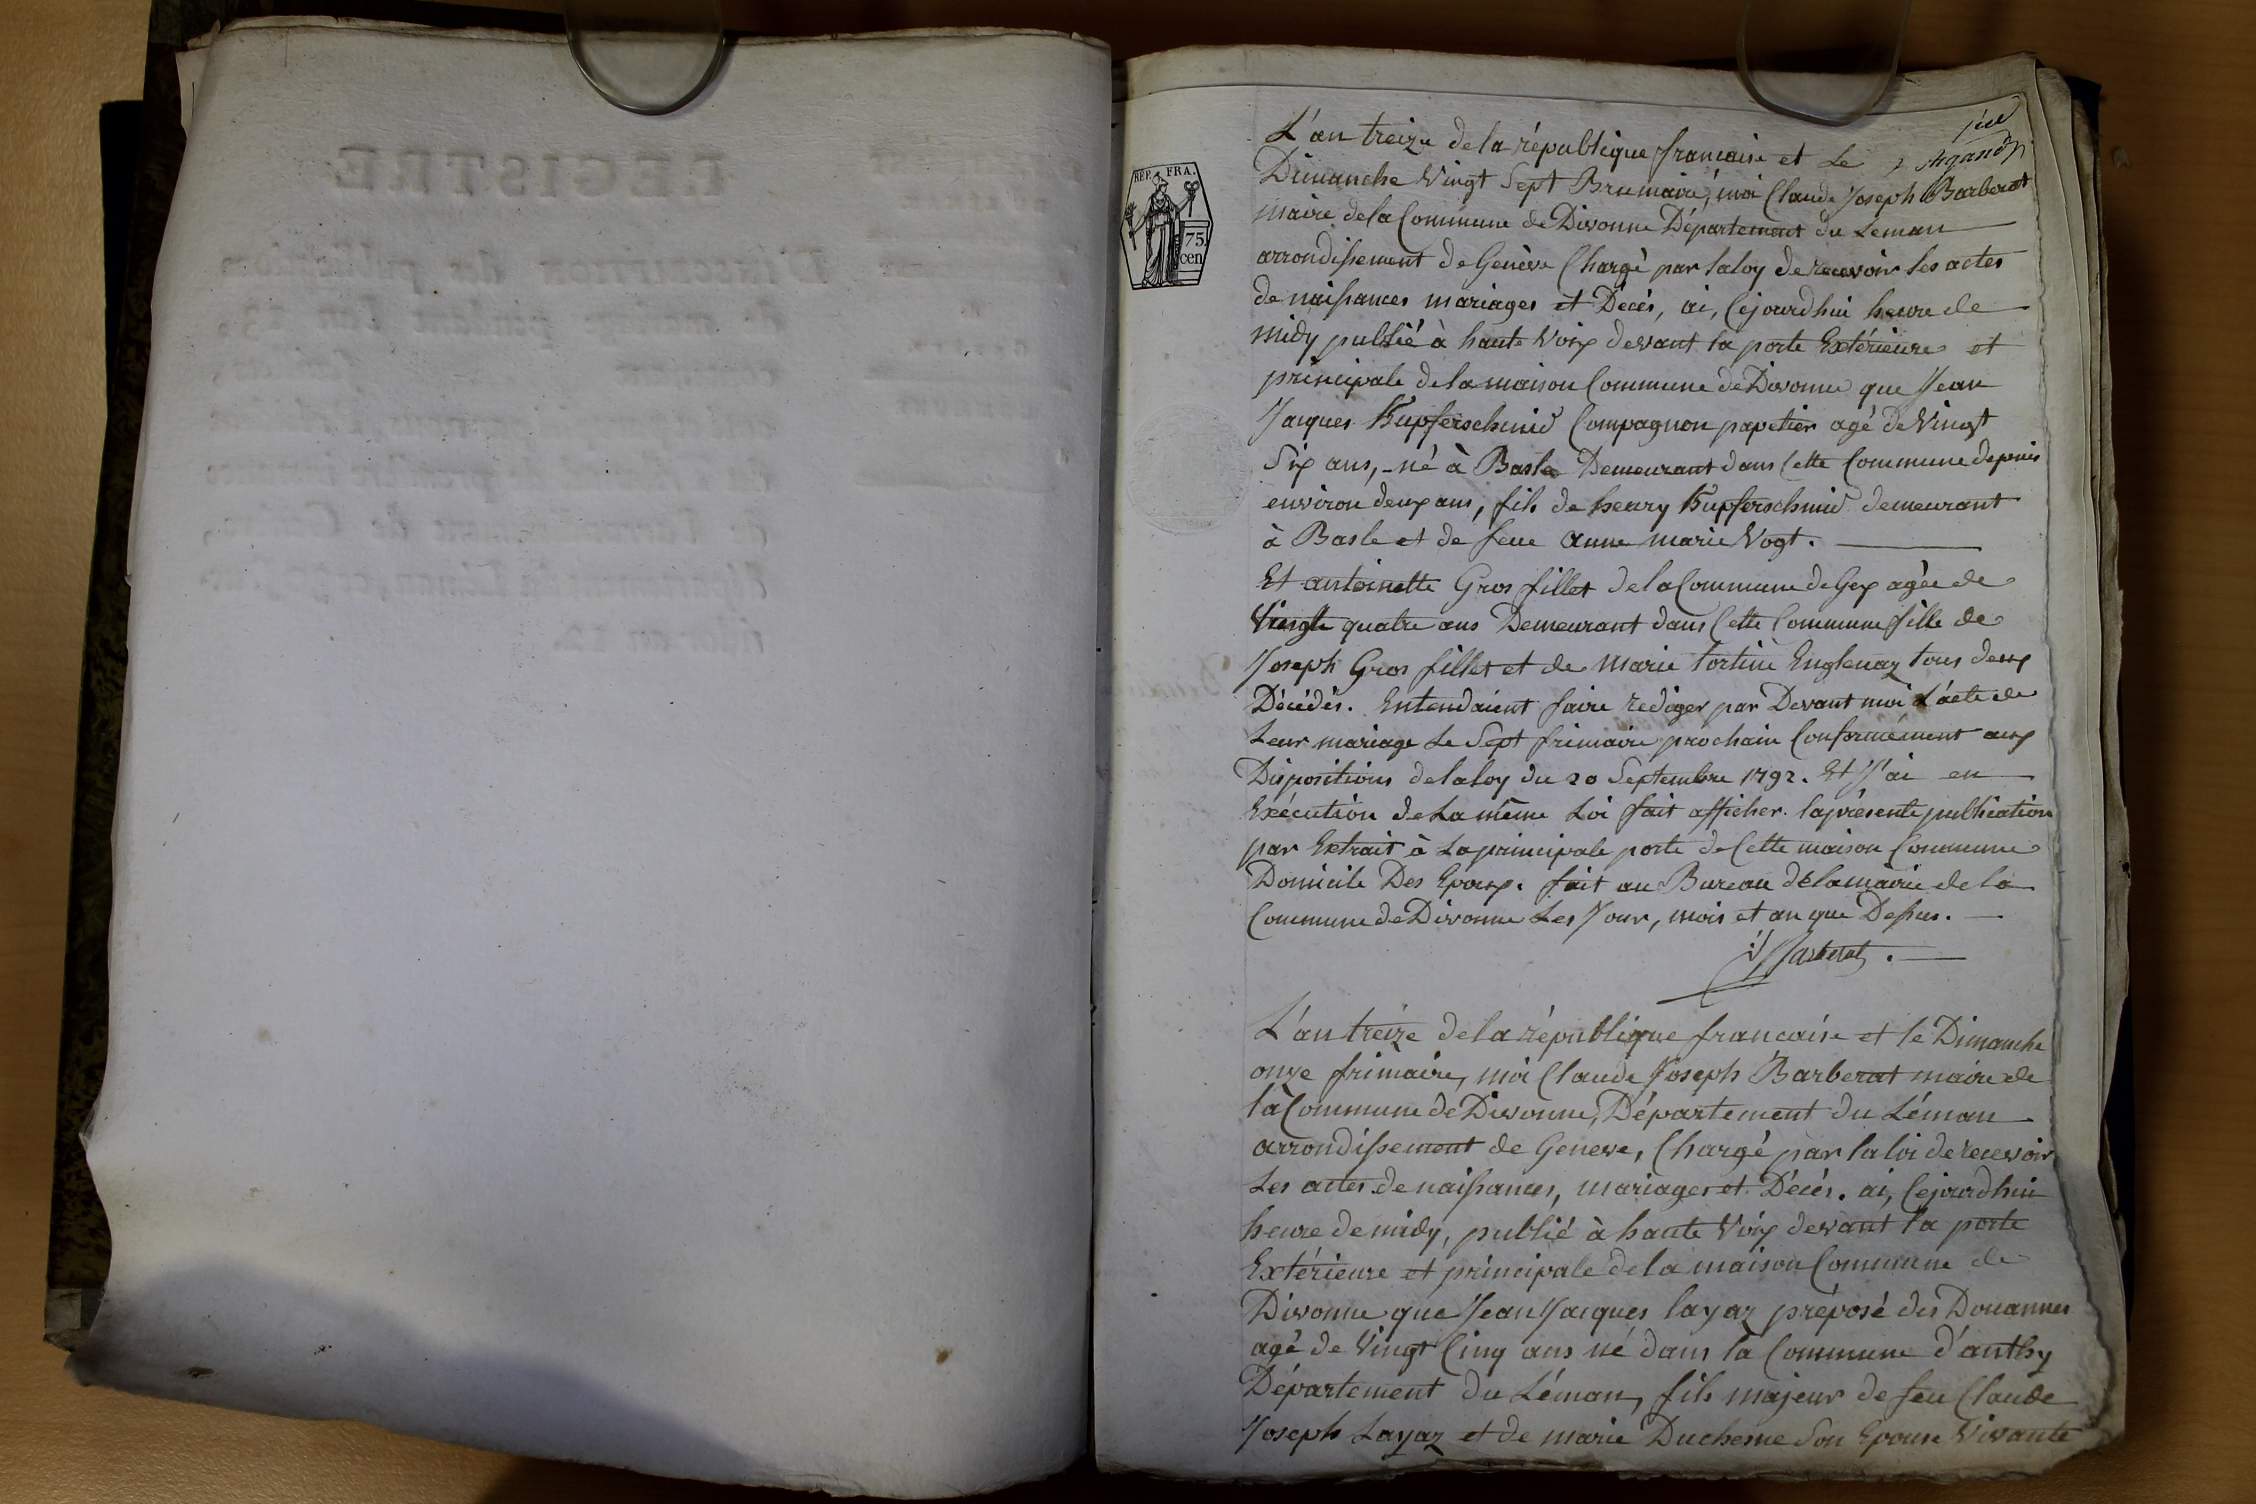 REP. FRA.
75
cen
L'an treize de la république francaise et Le
Dimanche Vingt Sept Brumaire, moi Claude Joseph Barberat
maire de la Commune de Divonne Département du Leman
arrondissement de Genève Chargé par la loy de recevoir les actes
de naissances mariages et Décès, ai, Cejourdhui heure de
midy publié à haute Voix devant la porte Extérieure et
principale de la maison Commune de Divonne que Jean
Jacques Kupferschmid Compagnon papetier agé de Vingt
Six ans, né à Basle Demeurant dans Cette Commune depuis
environ deux ans, fils de henry Kupferschmid demeurant
à Basle et de feue anne marie Vogt.
Et antoinette Gros fillet de la Commune de Gex agée de
Vingt quatre ans Demeurant dans Cette Commune fille de
Joseph Gros fillet et de Marie tortine Englenaz tous deux
Décédés. Entendaient faire rediger par Devant moi L'acte de
Leur mariage Le Sept frimaire prochain Conformément aux
Dispositions de la loy du 20 Septembre 1792. Et J'ai en
Exécution de La même Loi fait afficher la présente publication
par Extrait à La principale porte de Cette maison Commune
Domicile Des Epoux. fait au Bureau de la mairie de la
Commune de Divonne Les Jour, mois et an que Dessus.
Barberat
L'an treize de la république francaise et le Dimanche
onze frimaire, moi Claude Joseph Barberat maire de
la Commune de Divonne, Département du Léman
arrondissement de Geneve, Chargé par la loi de recevoir
Les actes de naissances, mariages et Décès. ai, Cejourdhui
heure de midy, publié à haute Voix devant la porte
Extérieure et principale de la maison Commune de
Divonne que Jean Jacques layaz préposé des Douannes
agé de Vingt Cinq ans né dans la Commune d'anthy
Département du Léman, fils majeur de feu Claude
Joseph Layaz et de marie Duchesne Son Epouse Vivante